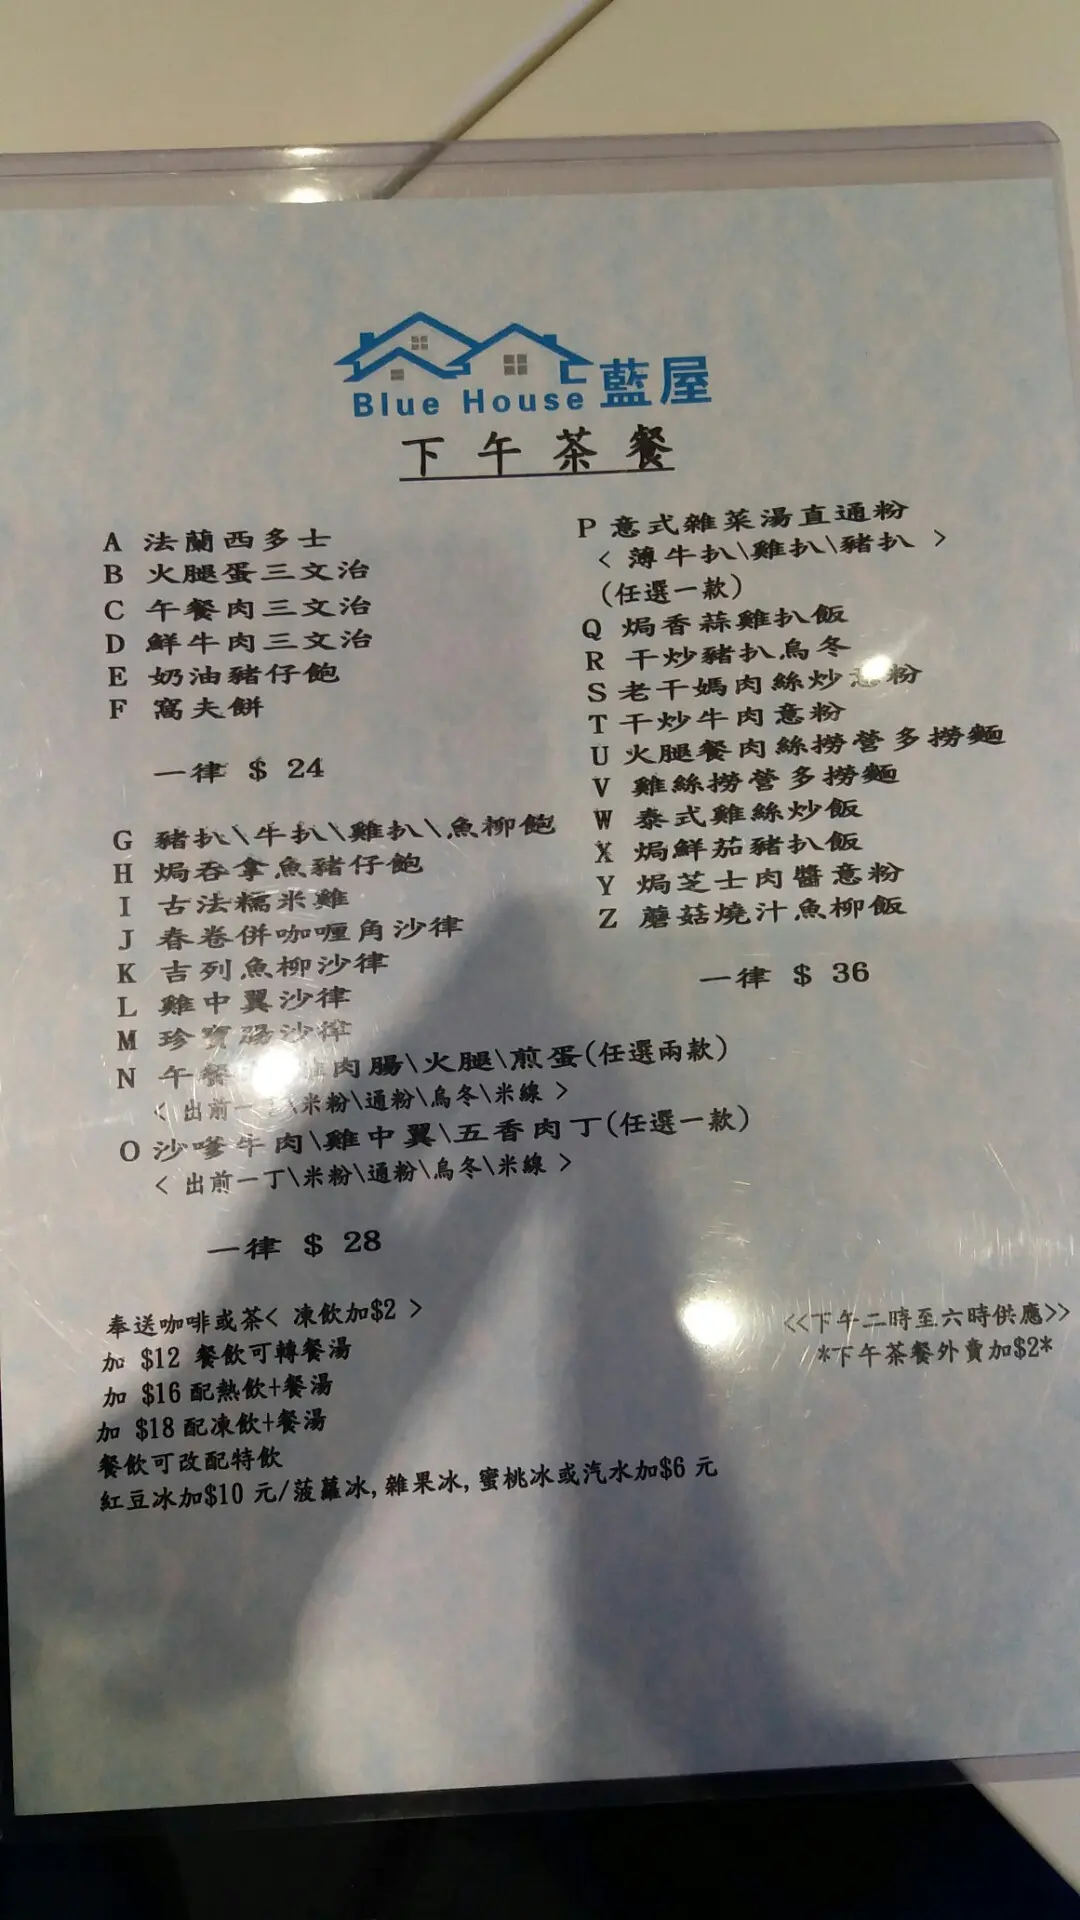 Blue House 藍屋
下午茶餐
A 法蘭西多士
B 火腿蛋三文治
C 午餐肉三文治
D 鮮牛肉三文治
E 奶油豬仔飽
F 窩夫餅
一律 $ 24
G 豬扒\牛扒\雞扒\魚柳飽
H 焗吞拿魚豬仔飽
I 古法糯米雞
J 春卷併咖喱角沙律
K 吉列魚柳沙律
L 雞中翼沙律
M 珍寶腸沙律
N 午餐 肉腸\火腿\煎蛋(任選兩款)
< 出前一 \米粉\通粉\烏冬\米線 >
O 沙嗲牛肉\雞中翼\五香肉丁(任選一款)
< 出前一丁\米粉\通粉\烏冬\米線 >
一律 $ 28
P 意式雜菜湯直通粉
< 薄牛扒\雞扒\豬扒 >
(任選一款)
Q 焗香蒜雞扒飯
R 干炒豬扒烏冬
S 老干媽肉絲炒意粉
T 干炒牛肉意粉
U 火腿餐肉絲撈營多撈麵
V 雞絲撈營多撈麵
W 泰式雞絲炒飯
X 焗鮮茄豬扒飯
Y 焗芝士肉醬意粉
Z 蘑菇燒汁魚柳飯
一律 $ 36
奉送咖啡或茶< 凍飲加$2 >
加 $12 餐飲可轉餐湯
加 $16 配熱飲+餐湯
加 $18 配凍飲+餐湯
餐飲可改配特飲
紅豆冰加$10 元/菠蘿冰,雜果冰,蜜桃冰或汽水加$6 元
<<下午二時至六時供應>>
*下午茶餐外賣加$2*